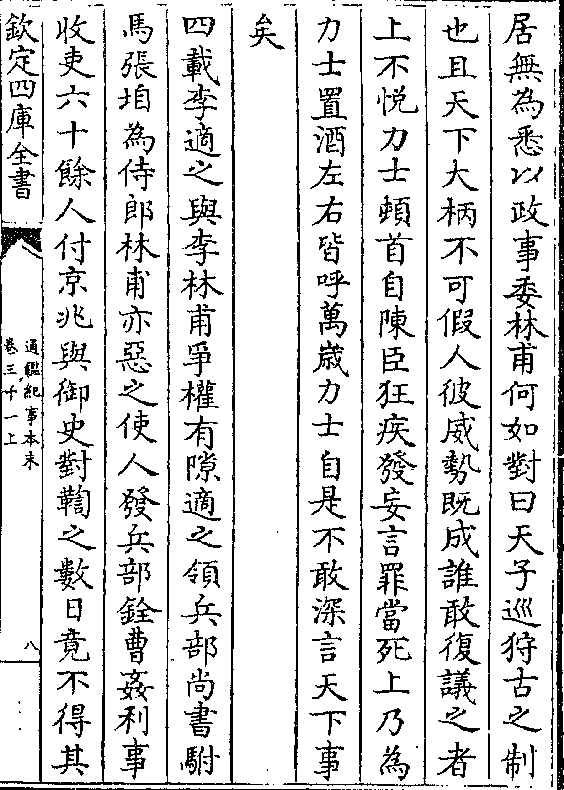 居無為悉以政事委林甫何如對曰天子巡狩古之制
也且天下大柄不可假人彼威勢既成誰敢復議之者
上不悅力士頓首自陳臣狂疾發妄言罪當死上乃為
力士置酒左右皆呼萬歲力士自是不敢深言天下事
矣
四載李適之與李林甫爭權有隙適之領兵部尚書駙
馬張垍為侍郎林甫亦惡之使人發兵部銓曹姦利事
收吏六十餘人付京兆與御史對鞫之數日竟不得其
欽定四庫全書
通鑑紀事本末
卷三十一上
八